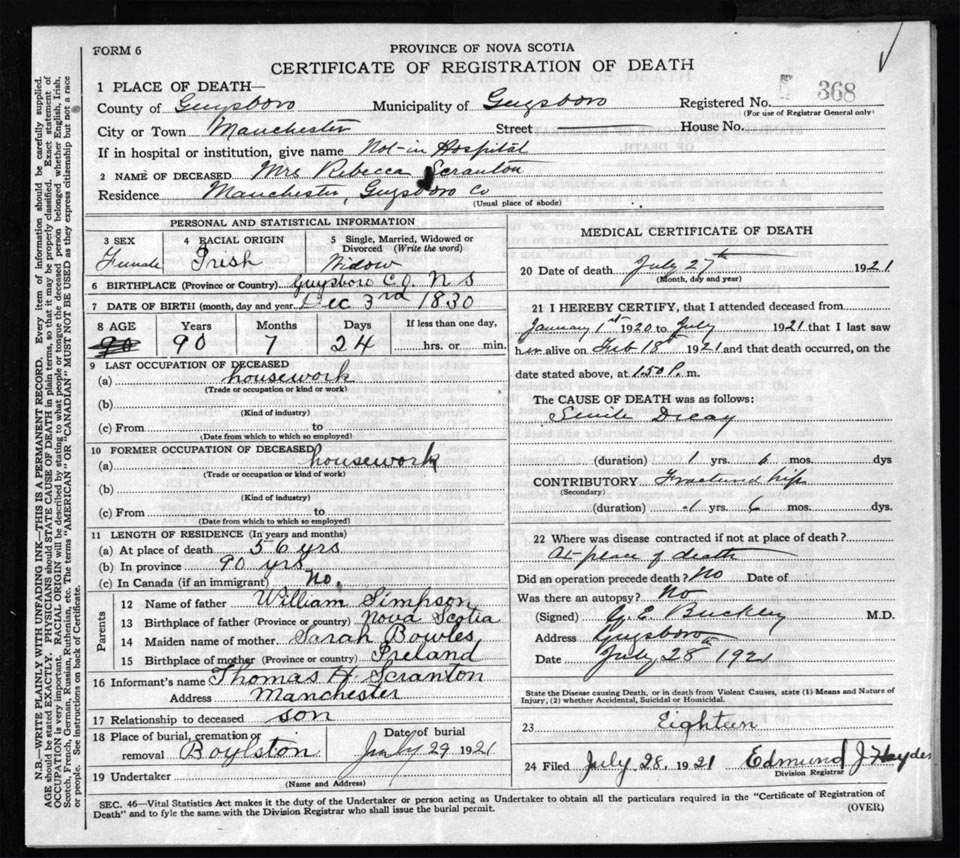 FORM 6
PROVINCE OF NOVA SCOTIA
CERTIFICATE OF REGISTRATION OF DEATH
1 PLACE OF DEATH—
County of Guysboro Municipality of Guysboro Registered No. 368
(For use of Registrar General only)
City or Town Manchester Street House No.
If in hospital or institution, give name Not-in Hospital
2 NAME OF DECEASED Mrs Rebecca Scranton
Residence Manchester, Guysboro Co
(Usual place of abode)
PERSONAL AND STATISTICAL INFORMATION
3 SEX 4 RACIAL ORIGIN 5 Single, Married, Widowed or Divorced (Write the word)
Female Irish Widow
6 BIRTHPLACE (Province or Country) Guysboro CO. N S
7 DATE OF BIRTH (month, day and year) Dec 3rd 1830
8 AGE Years Months Days If less than one day,
90 90 7 24 hrs. or min.
9 LAST OCCUPATION OF DECEASED
(a) housework
(Trade or occupation or kind or work)
(b)
(Kind of industry)
(c) From to
(Date from which to which so employed)
10 FORMER OCCUPATION OF DECEASED
(a) housework
(Trade or occupation or kind of work)
(b)
(Kind of industry)
(c) From to
(Date from which to which so employed)
11 LENGTH OF RESIDENCE (OF DECEASED)
(a) At place of death 56 yrs
(b) In province 90 yrs
(c) In Canada (if an immigrant) No.
Parents
12 Name of father William Simpson
13 Birthplace of father (Province or country) Nova Scotia
14 Maiden name of mother Sarah Bowles
15 Birthplace of mother (Province or country) Ireland
16 Informant's name Thomas H Scranton
Address Manchester
17 Relationship to deceased son
18 Place of burial, cremation or removal Boylston Date of burial July 29 1921
19 Undertaker
(Name and Address)
MEDICAL CERTIFICATE OF DEATH
20 Date of death July 27th 1921
(Month, day and year)
21 I HEREBY CERTIFY, that I attended deceased from
January 1st 1920 to July 1921 that I last saw
her alive on Feb 18th 1921 and that death occurred, on the
date stated above, at 1.50 P. m.
The CAUSE OF DEATH was as follows:
Senile Decay
(duration) 1 yrs. 6 mos. dys
CONTRIBUTORY Fractured hip
(Secondary)
(duration) 1 yrs. 6 mos. dys.
22 Where was disease contracted if not at place of death?
At place of death
Did an operation precede death? No Date of
Was there an autopsy? No
(Signed) G. E. Buckley M.D.
Address Guysboro
Date July 28 1921
State the Disease causing Death, or in death from Violent Causes, state (1) Means and Nature of
Injury, (2) whether Accidental, Suicidal or Homicidal.
23 Eighteen
24 Filed July 28. 1921 Edmund J. Hayden
Division Registrar
SEC. 46—Vital Statistics Act makes it the duty of the Undertaker or person acting as Undertaker to obtain all the particulars required in the "Certificate of Registration of
Death" and to fyle the same with the Division Registrar who shall issue the burial permit.
(OVER)
N.B.—WRITE PLAINLY WITH UNFADING INK—THIS IS A PERMANENT RECORD. Every item of information should be carefully supplied.
AGE should be stated EXACTLY. PHYSICIANS should STATE CAUSE OF DEATH in plain terms, so that it may be properly classified. Exact statement of
OCCUPATION is very important. RACIAL ORIGIN will be described by stating to what people or tongue the deceased person belonged whether English, Irish,
Scotch, French, German, Russian, Ruthenian, etc. The terms "AMERICAN" OR "CANADIAN" MUST NOT BE USED as they express citizenship but not a race
or people. See instructions on back of Certificate.